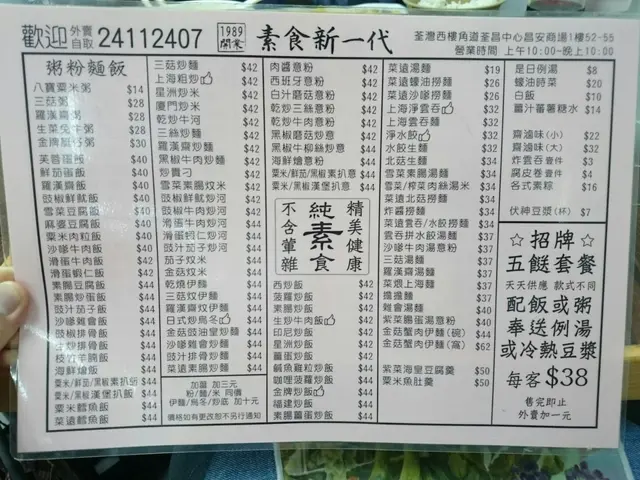 歡迎 外賣自取 24112407
1989開業
素食新一代
荃灣西樓角道荃昌中心昌安商場1樓52-55
營業時間 上午10:00-晚上10:00
粥粉麵飯
八寶粟米粥 $14
三菇粥 $28
羅漢齋粥 $28
生菜兔牛粥 $28
金牌艇仔粥 $30
芙蓉蛋飯 $40
鮮茄蛋飯 $40
羅漢齋飯 $40
豉椒鮮魷飯 $40
雪菜豆腐飯 $40
麻婆豆腐飯 $40
粟米肉粒飯 $40
沙嗲牛飯 $40
滑蛋牛飯 $42
滑蛋蝦仁飯 $42
素腸豆腐飯 $44
素腸炒蛋飯 $44
豉汁茄子飯 $44
沙嗲雜會飯 $44
豉椒排骨飯 $44
生炒排骨飯 $44
枝竹羊腩飯 $44
海鮮燴飯 $44
粟米/鮮茄/黑椒素扒飯 $44
粟米/黑椒漢堡扒飯 $44
粟米鱈魚飯 $44
菜遠鱈魚飯 $44
三菇炒麵 $42
上海粗炒 $42
星洲炒米 $42
廈門炒米 $42
乾炒牛河 $42
三絲炒麵 $42
羅漢齋炒麵 $42
黑椒牛肉炒麵 $42
炒貴刁 $42
雪菜素腸炆米 $42
豉椒鮮魷炒河 $42
豉椒牛肉炒河 $42
滑蛋蝦仁炒河 $44
豉汁茄子炒河 $44
茄子炆米 $44
金菇炆米 $44
乾燒伊麵 $44
三菇炆伊麵 $44
羅漢齋炆伊麵 $44
日式炒烏冬 $44
金菇豉油皇炒麵 $44
沙嗲雜會炒麵 $44
豉汁排骨炒麵 $44
菜遠素腸炒麵 $44
加溫 加三元
粉/麵/米 同價
伊麵/烏冬/炒底 加十元
價格如有更改恕不另行通知
肉醬意粉 $42
西班牙意粉 $42
白汁蘑菇意粉 $42
乾炒三絲意粉 $42
乾炒牛肉意粉 $42
黑椒蘑菇炒意 $42
黑椒牛柳絲炒意 $42
海鮮燴意粉 $44
粟米/鮮茄/黑椒素扒意 $44
粟米/黑椒漢堡扒意 $44
精美健康
純素食
不含葷雜
西炒飯 $42
菠蘿炒飯 $42
素腸炒飯 $42
生炒牛肉飯 $42
印尼炒飯 $42
星洲炒飯 $42
薑蛋炒飯 $42
鹹魚雞粒炒飯 $44
咖哩菠蘿炒飯 $44
金牌炒飯 $44
福建炒飯 $44
素腸薑蛋炒飯 $44
菜遠湯麵 $19
菜遠蠔油撈麵 $26
菜遠沙嗲撈麵 $26
上海淨雲吞 $32
上海雲吞麵 $32
淨水餃 $32
水餃生麵 $32
北菇生麵 $34
雪菜素腸湯麵 $34
雪菜/榨菜肉絲湯米 $34
菜遠北菇麵 $34
炸醬撈麵 $34
菜遠雲吞/水餃撈麵 $34
雲吞拼水餃湯麵 $37
沙嗲牛肉湯意粉 $37
三菇湯麵 $37
羅漢齋湯麵 $37
菜煨上海麵 $37
擔擔麵 $37
雜會湯麵 $40
紫菜腸蛋湯意粉 $40
金菇蟹肉伊麵(碗) $44
金菇蟹肉伊麵(窩) $62
紫菜海皇豆腐羹 $50
粟米魚肚羹 $50
是日例湯 $8
蠔油時菜 $20
白飯 $10
薑汁蕃薯糖水 $14
齋滷味(小) $22
齋滷味(大) $32
炸雲吞 壹件 $3
腐皮卷 壹件 $4
各式素粽 $16
伏神豆漿(杯) $7
☆招牌☆
五餸套餐
天天供應 款式不同
配飯或粥
奉送例湯
或冷熱豆漿
每客$38
售完即止
外賣加一元